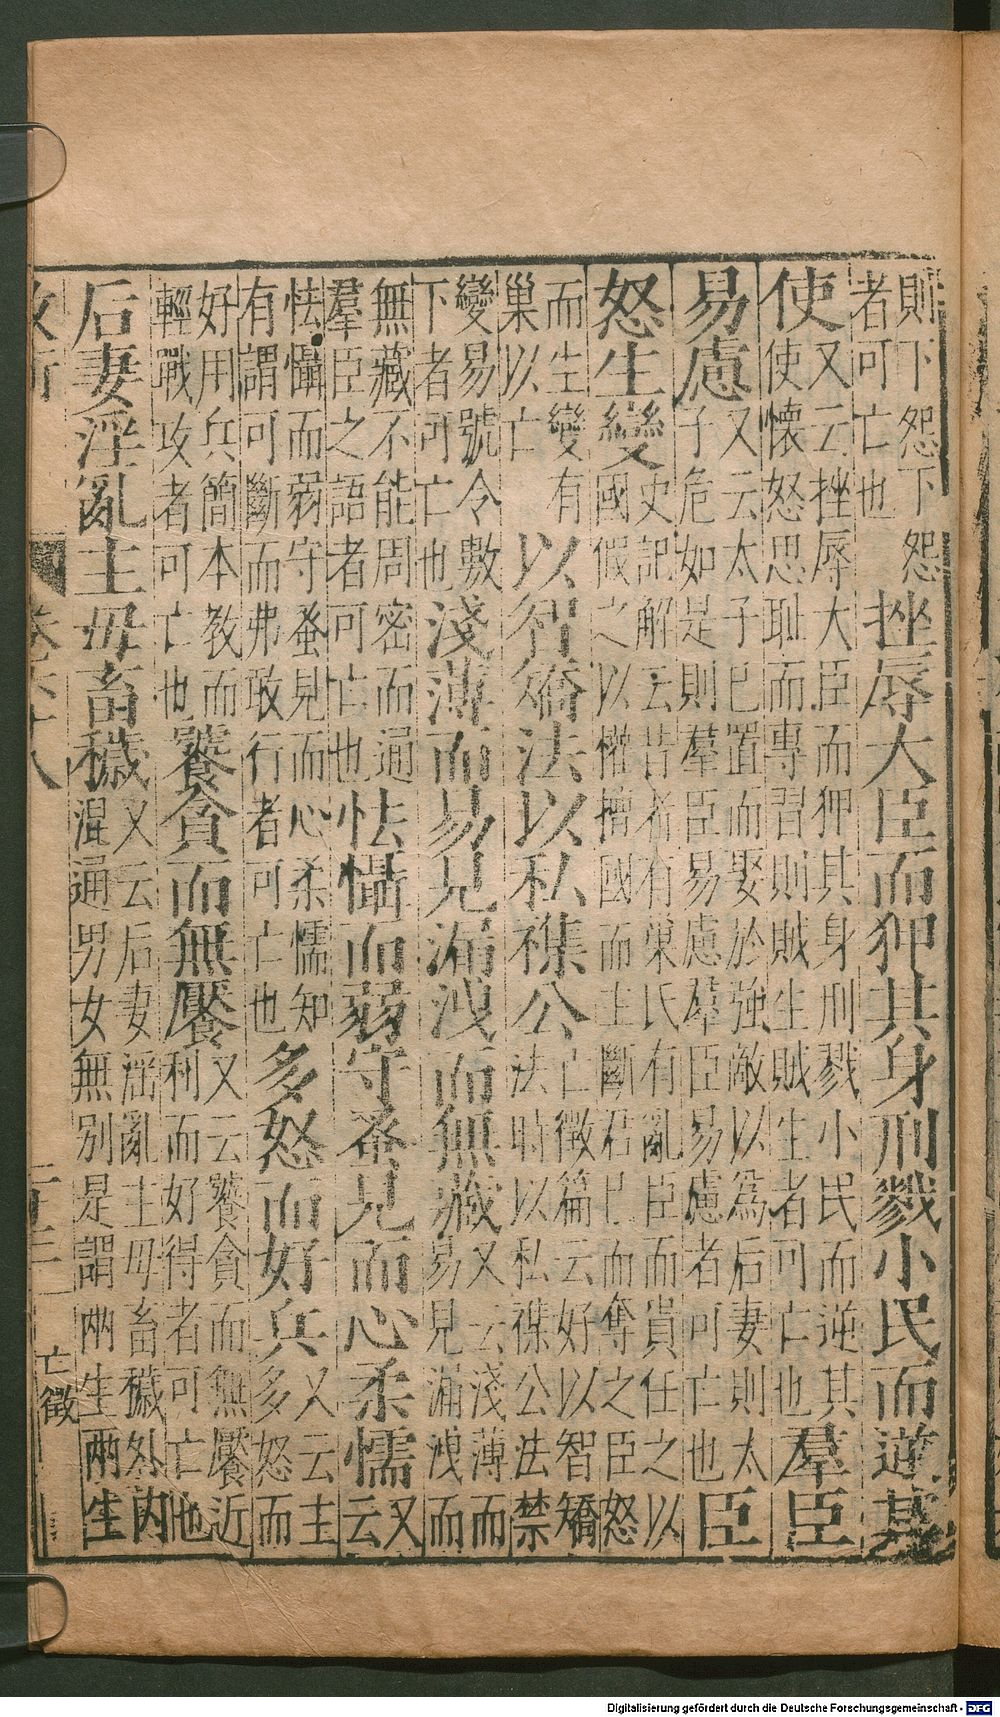 則下怨下怨
者可亡也
挫辱大臣而狎其身刑戮小民而逆其
使
又云挫辱大臣而狎其身刑戮小民而逆其
使懷怒思耻而專習則賊生賊生者可亡也
羣臣
易慮
又云太子已置而娶於強敵以為后妻則太
子危如是則羣臣易慮羣臣易慮者可亡也
臣
怒生變
史記解云昔者有巢氏有亂臣而貴任之以
國假之以權擅國而主斷君已而奪之臣怒
而生變有
巢以亡
以智矯法以私襍公
亡徵篇云好以智矯
法時以私襍公法禁
變易號令數
下者可亡也
淺薄而易見漏洩而無藏
又云淺薄而
易見漏洩而
無藏不能周密而通
羣臣之語者可亡也
怯懾而弱守蚤見而心柔懦
又
云
怯懾而弱守蚤見而心柔懦知
有謂可斷而弗敢行者可亡也
多怒而好兵
又云主
多怒而
好用兵簡本教而
輕戰攻者可亡也
饕貪而無饜
又云饕貪而無饜近
利而好得者可亡也
后妻淫亂主毋畜穢
又云后妻淫亂主毋畜穢外内
混通男女無別是謂兩生兩生
亡徵
Digitalisierung gefördert durch die Deutsche Forschungsgemeinschaft - DFG